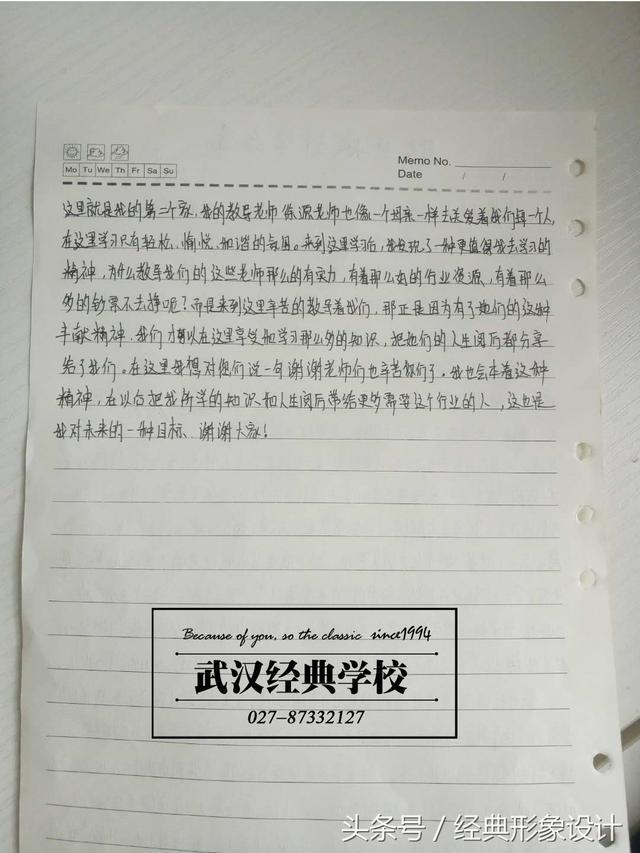 Memo No.
Mo Tu We Th Fr Sa Su
Date / /
这里就是我的第二个家，我的教导老师徐源老师也像一个母亲一样去关爱着我们每一个人，
在这里学习只有轻松、愉悦、和谐的氛围。来到这里学习后，我发现了一种更值得我去学习的
精神，为什么教导我们的这些老师那么的有实力，有着那么好的行业资源、有着那么
多的钞票不去挣呢？而是来到这里辛苦的教导着我们，那正是因为有了她们的这种
奉献精神，我们才可以在这里享受和学习那么多的知识，把他们的人生阅历都分享
给了我们。在这里我想对您们说一句谢谢老师们也辛苦你们了，我也会本着这种
精神，在以后把我所学的知识和人生阅历带给更多需要这个行业的人，这也是
我对未来的一种目标、谢谢大家！
Because of you, so the classic since1994
武汉经典学校
027-87332127
头条号 / 经典形象设计